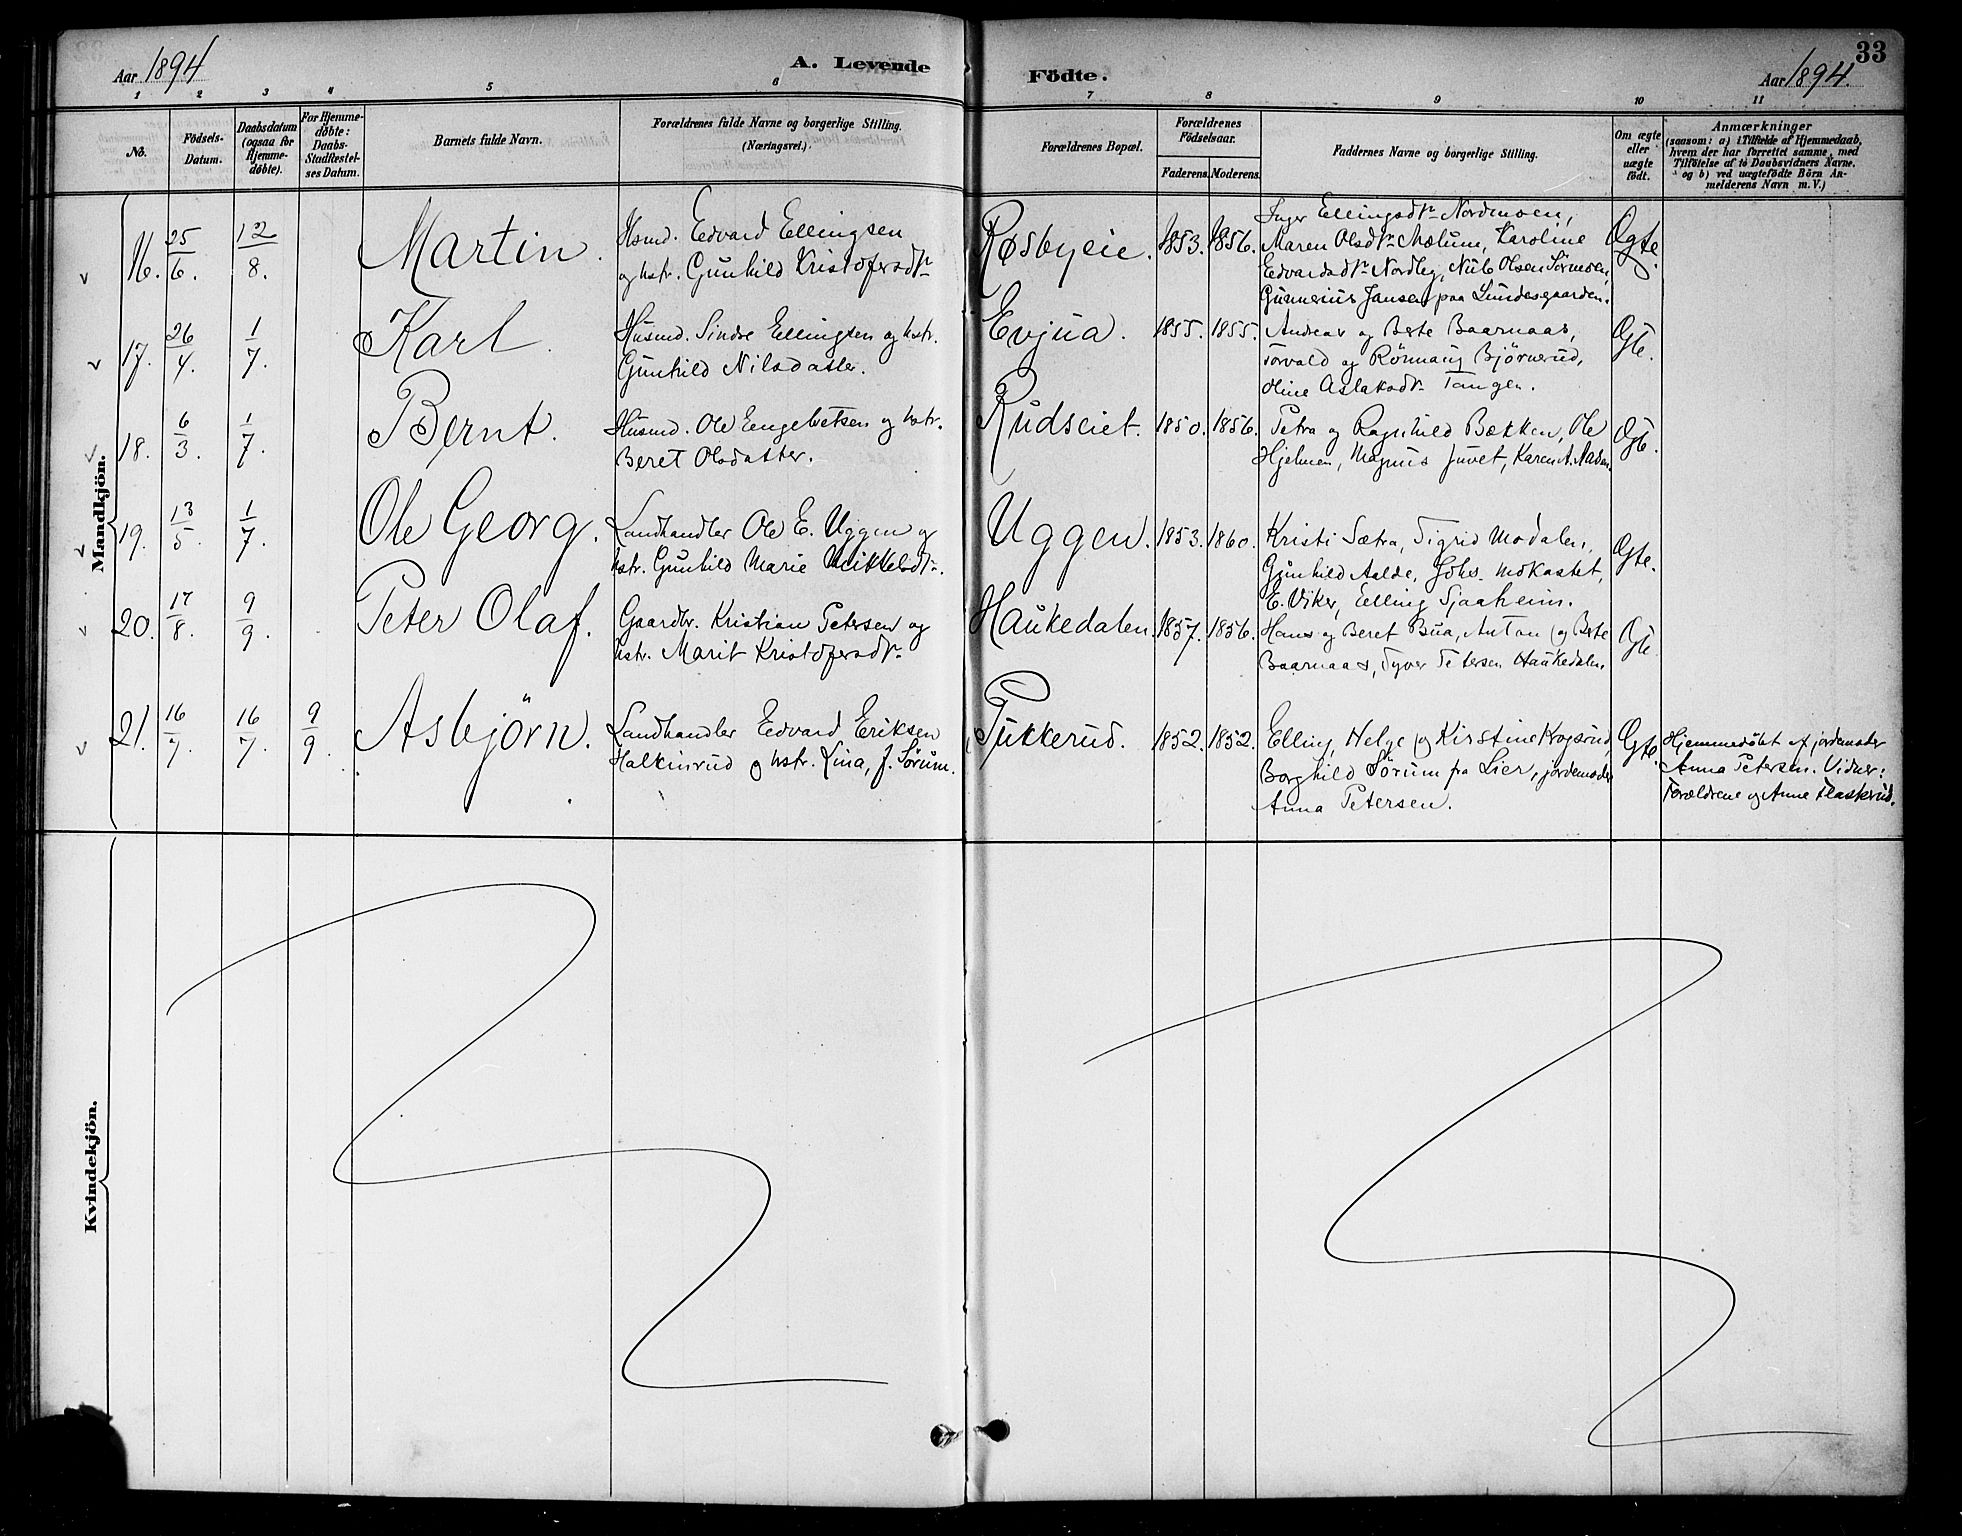 33
Aar 1894
A. Levende
Födte.
Aar 1894.
1 2 3 4 5 6 7 8 9 10 11
No.
Födsels-
Datum.
Daabsdatum
(ogsaa for
Hjemme-
døbte).
For Hjemme-
døbte:
Daabs-
Stadfæstel-
ses Datum.
Barnets fulde Navn.
Forældrenes fulde Navne og borgerlige Stilling.
(Næringsvei.)
Forældrenes Bopæl.
Forældrenes
Födselsaar.
Faderens. Moderens.
Faddernes Navne og borgerlige Stilling.
Om ægte
eller
uægte
födt.
Anmærkninger
(saasom: a) i Tilfælde af Hjemmedaab,
hvem der har forrettet samme, med
Tilföielse af to Daabsvidners Navne,
og b) ved uægtefödte Börn An-
melderens Navn m. V.)
Mandkjön.
16. 25/6. 12/8. Martin.
Hsmd. Edvard Ellingsen
og hstr. Gunhild Kristofersdtr
Røsbyeie. 1853. 1856.
Inger Ellingsdtr Nordmoen,
Maren Olsdtr Mælum, Karoline
Edvardsdtr Nordby, Nils Olsen Sörmoen,
Gunnerius Jansen paa Lundesgaarden.
Ægte.
17. 26/4. 1/7. Karl.
Husmd. Sindre Ellingsen og hstr.
Gunhild Nilsdatter.
Evjua. 1855. 1855.
Andreas og Berte Baarnaas,
Torvald og Rönnaug Björnerud,
Oline Aslaksdtr Tangen.
Ægte.
18. 6/3. 1/7. Bernt.
Husmd. Ole Engebretsen og hstr.
Beret Olsdatter.
Rudseiet. 1850. 1856.
Petra og Ragnhild Bækken, Ole
Hjelmen, Magnus Juvet, Karen A.
Ægte.
19. 13/5. 1/7. Ole Georg.
Landhandler Ole E. Uggen og
hstr. Gunhild Marie Mikkelsdtr.
Uggen. 1853. 1860.
Kristi Sætra, Sigrid Modalen,
Gunhild Aalde, Johs. Mokastet,
E. Viker, Elling Sjaaheim.
Ægte.
20. 17/8. 9/9. Peter Olaf.
Gaardbr. Kristian Petersen og
hstr. Marit Kristofersdtr
Haukedalen. 1857. 1856.
Hans og Beret Bua, Anton og Berte
Baarnaas, Syver Petersen Haukedalen.
Ægte.
21. 16/7. 16/7. 9/9. Asbjörn.
Landhandler Edvard Eriksen
Halkinrud og hstr. Lina, f. Sörum.
Tukkerud. 1852. 1852.
Elling, Helge og Kirstine Krogsrud
Borghild Sörum fra Lier, jordemoder
Anna Petersen.
Ægte.
Hjemmedöbt af jordemoder
Anna Petersen. Vidner:
Forældrene og Anne Flaskerud.
Kvindekjön.